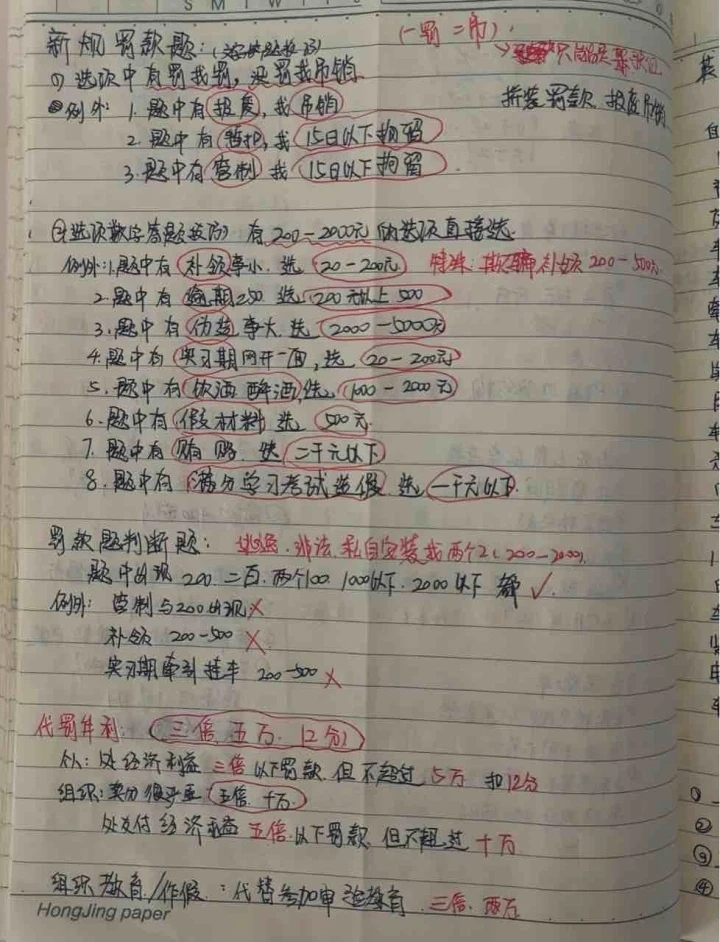 S M T W T F S
新规罚款题:
(一罚二吊)
只能是罚款
① 选项中有罚找罚,没罚找吊销
拼装罚款 报废吊销
例外: 1. 题中有报废,找吊销
2. 题中有 找 15日以下拘留
3. 题中有管制 找 15日以下拘留
②选项数字 有200-2000元的选项直接选.
例外:1.题中有 补领事小. 选 20-200元. 特殊: 补领 200-500元.
2.题中有 逾期 选 200元以上 500
3.题中有 伪造事大. 选 2000-5000元
4.题中有 实习期网开一面,选 20-200元
5.题中有 饮酒 醉酒,选 1000-2000元
6.题中有 假材料 选 500元.
7.题中有 贿赂. 选 二千元以下
8.题中有 满分学习考试造假 选 一千元以下.
罚款题判断题: 逃逸.非法.私自安装找两个2(200-2000).
题中出现 200.二百.两个100.1000以下.2000以下 都 ✓.
例外: 管制与200出现 ×
补领 200-500 ×
实习期牵引挂车 200-500 ×
代罚牟利: (三倍 五万. 12分)
处经济利益 三倍以下罚款 但不超过 5万 扣12分
组织: 卖分很严重 五倍 十万
处支付经济利益 五倍以下罚款 但不超过 十万
组织教育/作假: 代替参加审验教育 三倍. 两万
HongJing paper